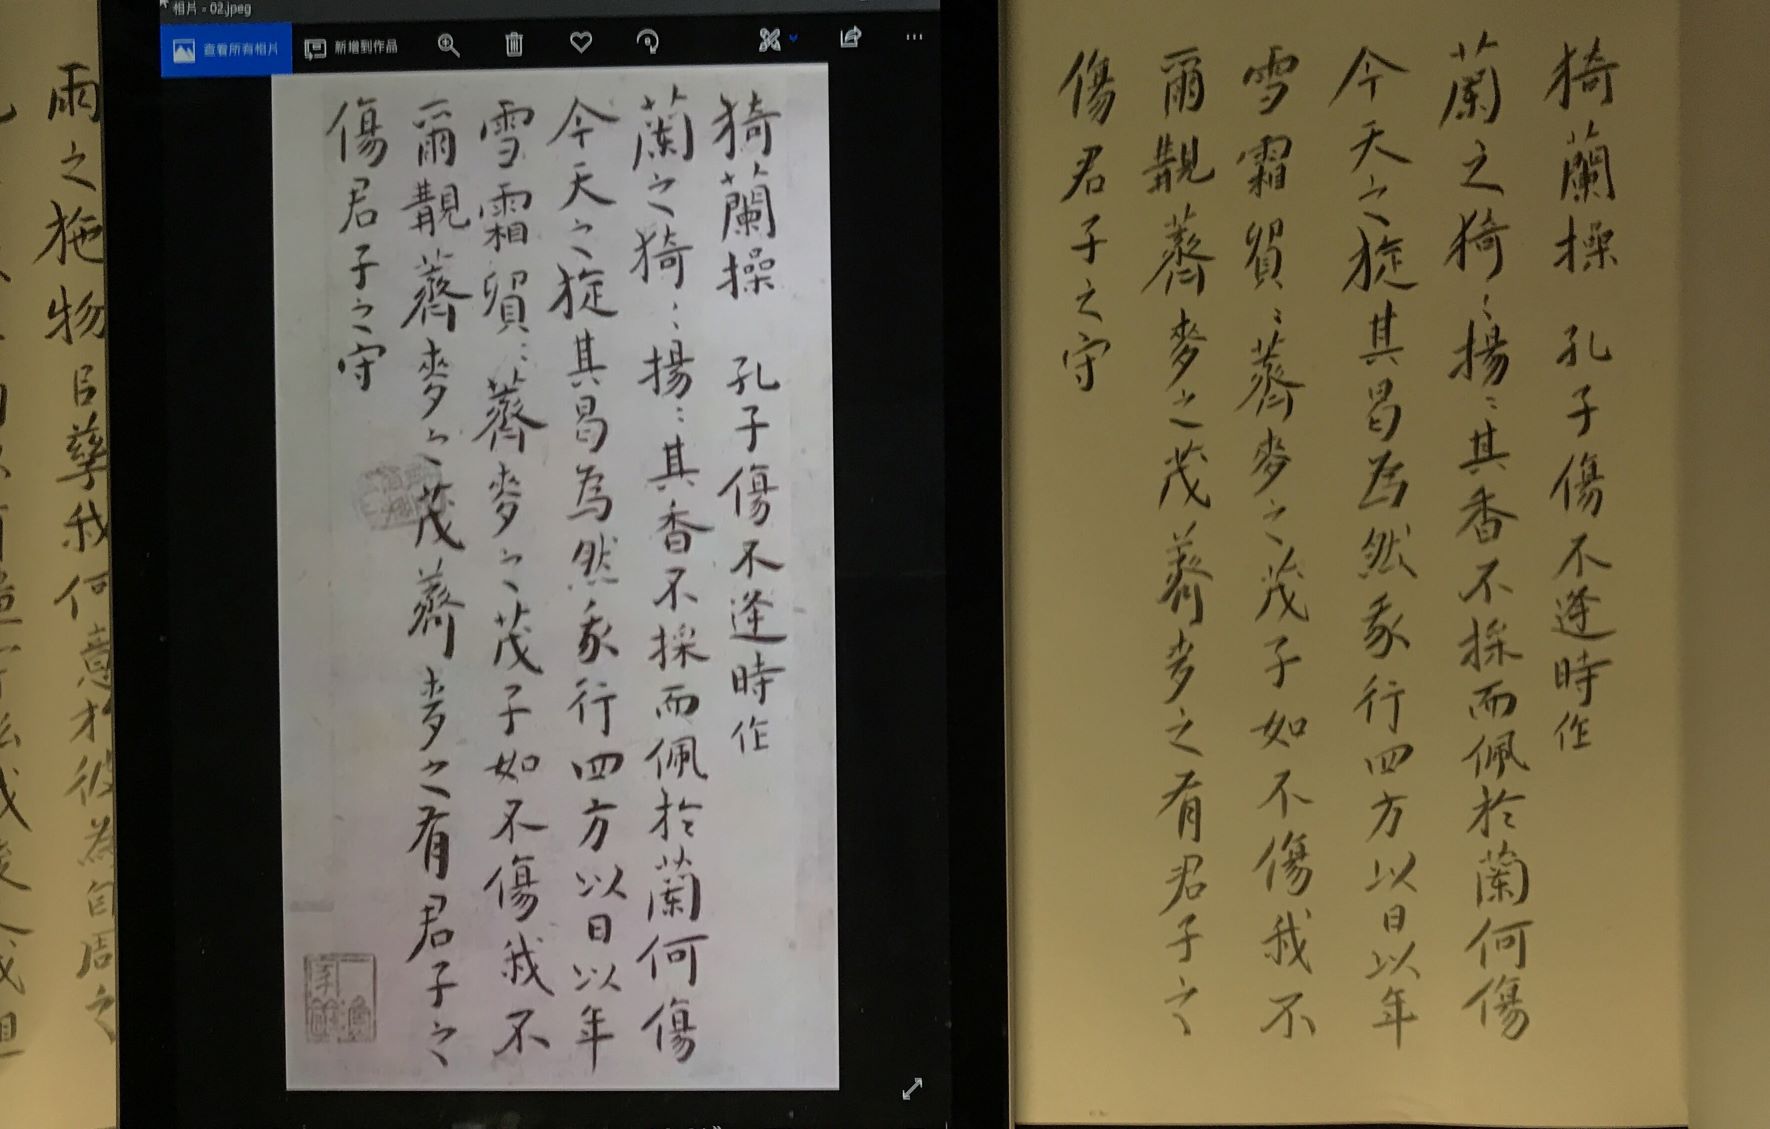 相片 - 02.jpeg
查看所有相片
新增到作品
猗蘭操 孔子傷不逢時作
蘭之猗〻揚〻其香不採而佩於蘭何傷
今天之旋其曷為然我行四方以日以年
雪霜貿〻薺麥之茂子如不傷我不
爾覯薺麥之茂薺麥之有君子之
傷君子之守
猗蘭操 孔子傷不逢時作
蘭之猗〻揚〻其香不採而佩於蘭何傷
今天之旋其曷為然我行四方以日以年
雪霜貿〻薺麥之茂子如不傷我不
爾覯薺麥之茂薺麥之有君子之
傷君子之守
雨之施物㠯孳我何意於彼為自周之